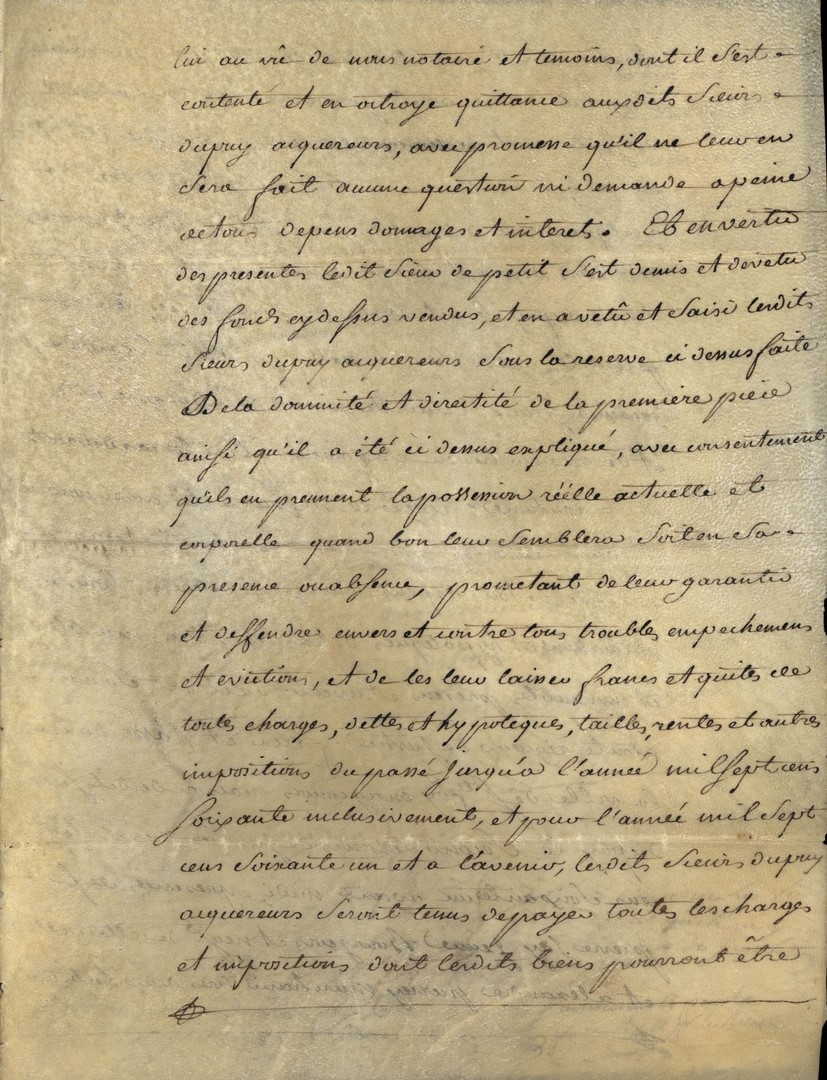 lui au vû de nous notaire et temoins, dont il s'est
contenté et en octroye quittance auxdits Sieurs
dupuy acquereurs, avec promesse qu'il ne leur en
sera fait aucune question ni demande a peine
de tous depens domages et interets. Et en vertu
des presentes ledit Sieur de petit s'est demis et devetu
des fonds cy dessus vendus, et en a vetû et saisi lesdits
Sieurs dupuy acquereurs sous la reserve ci dessus faite
De la dominité et directité de la premiere piece
ainsi qu'il a été ci dessus expliqué, avec consentement
qu'ils en prennent la possession réëlle actuelle et
corporelle quand bon leur semblera soit en sa
presence ou absence, prometant de leur garantir
et deffendre envers et contre tous troubles, empechemens
et evictions, et de les leur laisser francs et quites de
toutes charges, dettes et hypoteques, tailles, rentes et autres
impositions du passé jusqu'a l'année mil sept cens
soixante inclusivement, et pour l'année mil sept
cens soixante un et a l'avenir, lesdits Sieurs dupuy
acquereurs seront tenus de payer toutes les charges
et impositions dont lesdits biens pourront être